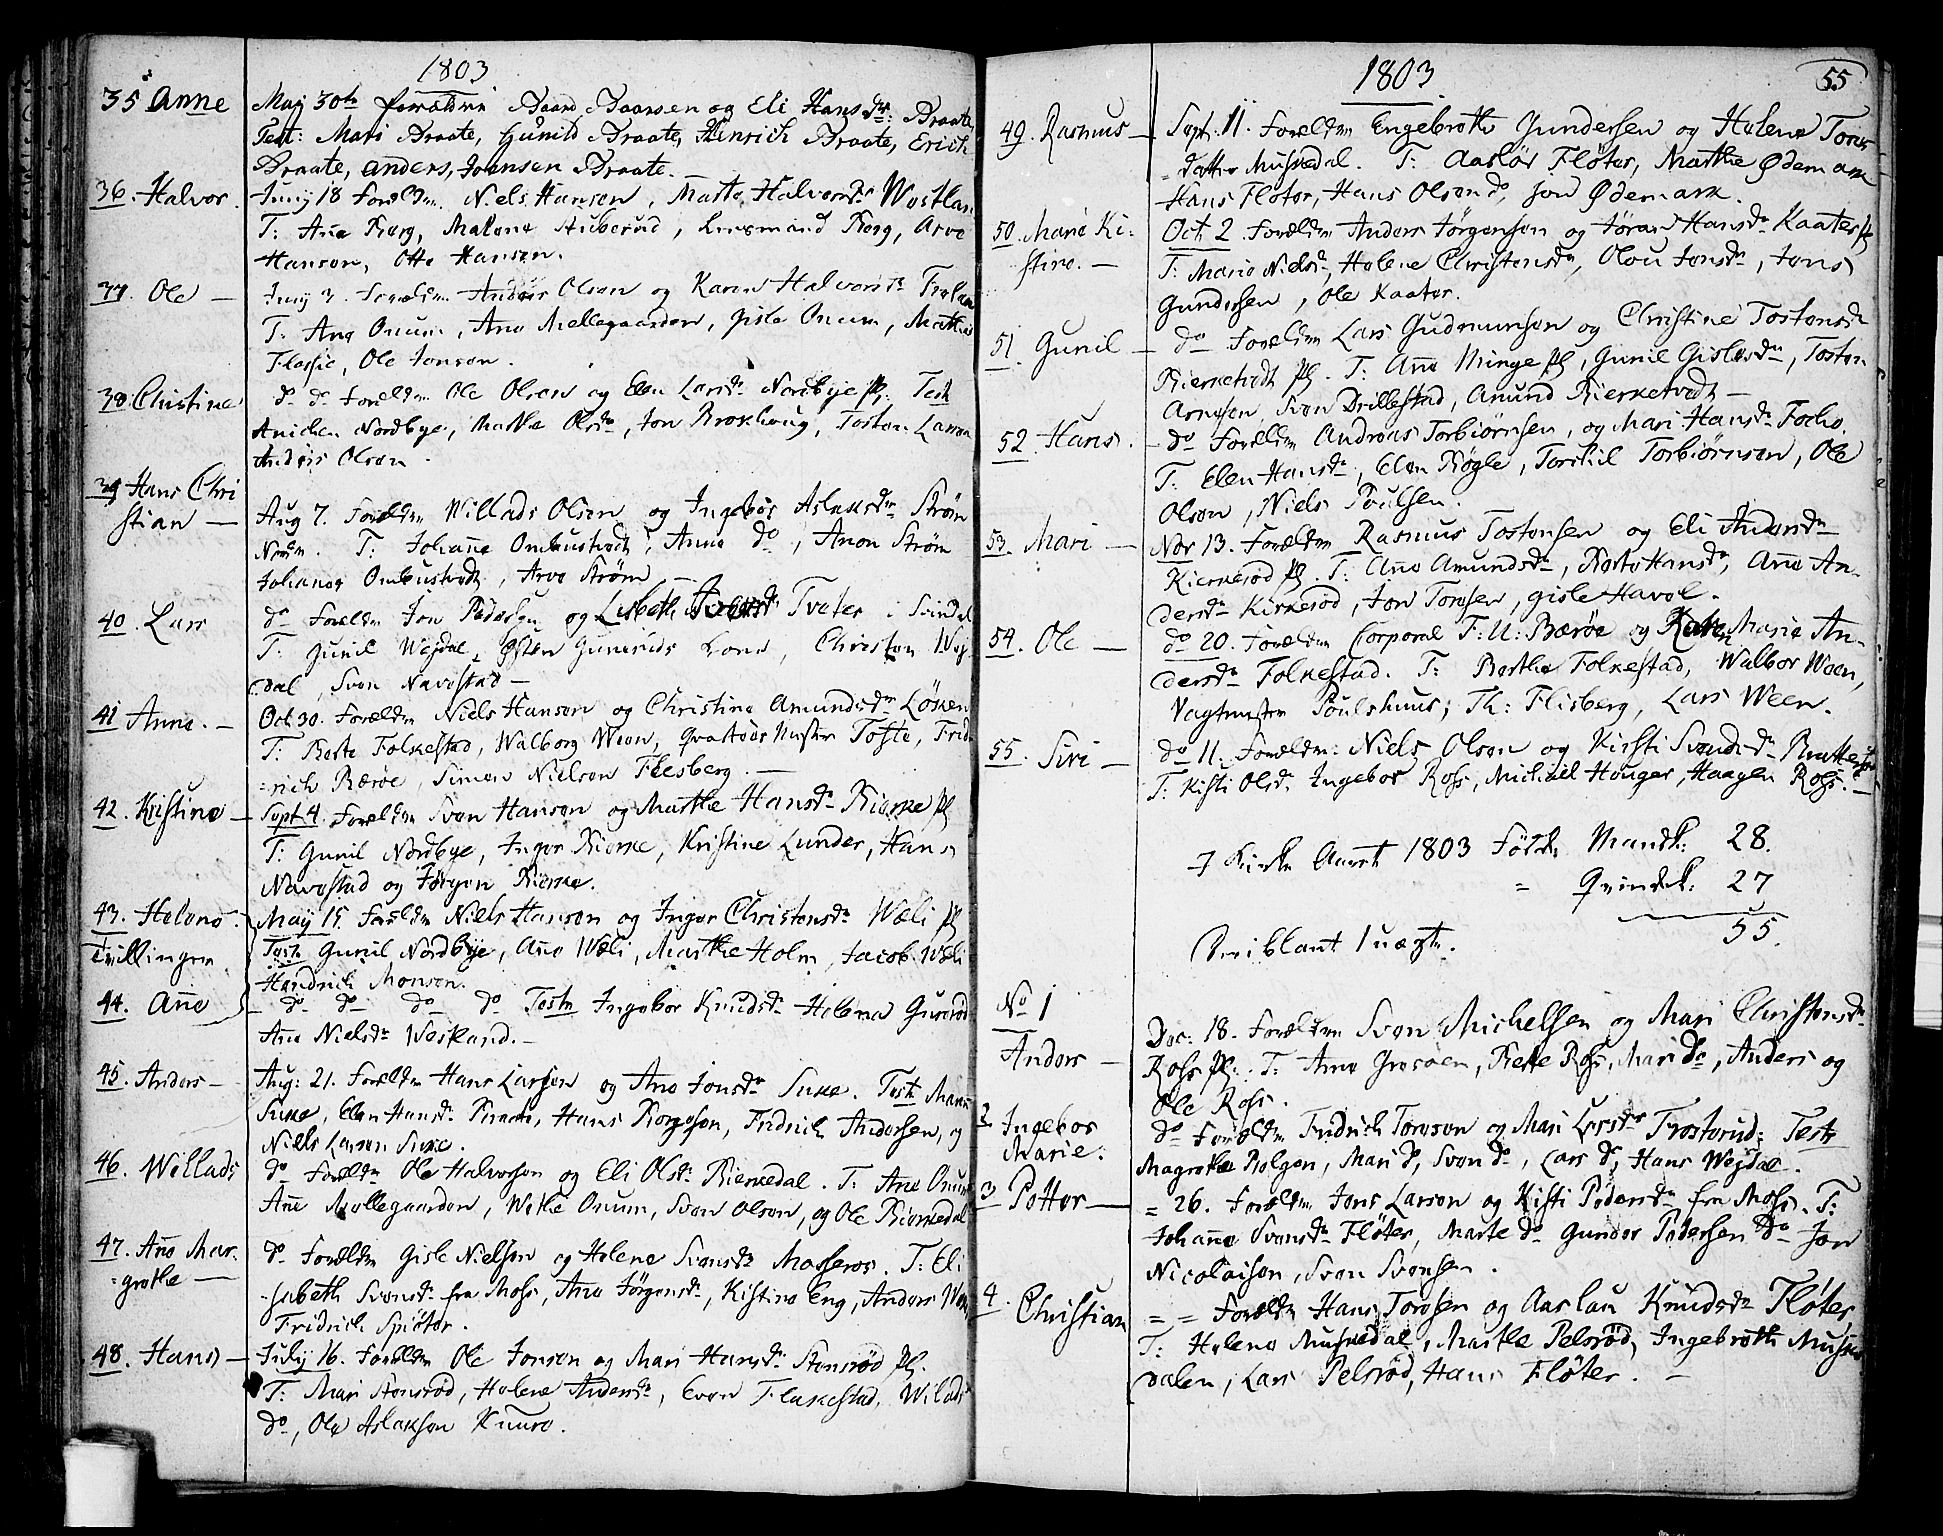 1803
35 Anne
May 30te forældre Baard Baarsen og Eli Hansdr: Braate,
Test: Mari Braate, Gunild Braate, Henrich Braate, Erich
Braate, Anders Joensen Braate.
36. Halvor.
Juny 18 Foreldre Niels Hansen, Marte Halvorsdr
T: Ane Berg, Malene Huberud, Berg, Arve
Hansen, Otto Hansen.
37. Ole —
Juny 3. Foreldre Anders Olsen og Karen Halvorsdr
T: Ane Onum, Ane Mellegaarden, Gisle Onum, Mathias
Flessie, Ole Jonsen.
38 Christine
do do Foreldre Ole Olsen og Elen Larsdr Nordbye pl. Test
Anichen Nordbye, Marthe Olsdr, Jon Brokhoug, Tosten Larsen
Anders Olsen.
39 Hans Chri
stian —
Aug 7. Foreldre Willads Olsen og Ingebor Aslaksdr Strøm
Nordre. T: Johane Ombustvedt, Anne do, Anon Strøm
Johanes Ombustvedt, Arve Strøm —
40. Lars
do Foreldre Jon Pedersen og Lisbeth Tveter i Svindal
T: Gunil Wejdal, Lone, Christen Wej
dal, Sven Navestad —
41 Anne. —
Oct 30. Foreldre Niels Hansen og Christine Amundsdr Løken
T: Berte Folkestad, Walborg Ween, Tofte, Frid
=rich Bærøe, Simon Nielsen Flesberg. —
42. Kristine —
Sept 4. Foreldre Sven Hansen og Marthe Hansdr Bierke pl
T: Gunil Nordbye, Inger Bierke, Kristine Lunder, Hans
Navestad og Jørgen Bierke.
43. Helene.
Tvillinger.
May 15. Foreldre Niels Hansen og Inger Christensdr Wæli pl
Test Gunil Nordbye, Ane Wæli, Marthe Holm, Jacob Wæli
Hendrich Monsen.
44. Ane
— do do do do Test Ingebor Knudsdr Helena
Ane Nielsdr Weskand. —
45. Anders —
Aug: 21. Foreldre Hans Larsen og Ane Jonsdr Suke. Test Maren
Suke, Elen Hansdr, Hans Borgesen, Fridrich Andersen, og
Niels Larsen Suke.
46. Willads
do Foreldre Ole Halvorsen og Eli Olsdr Bierkedal. T: Ane Onum
Ane Mollegaarden, Wethe Onum, Sven Olsen, og Ole Bierkedal
47. Ane Mar
=grethe —
do Foreldre Gisle Nielsen og Helene Svensdr Masseros. T: Eli
=sabeth Svensdr fra Moss, Ane Jørgensdr, Kistine Eng, Anders
Fridrich Spiøter.
48. Hans —
July 16. Foreldre Ole Jonsen og Mari Hansdr Stensrød pl.
T: Mari Stensrød, Helene Andersdr, Even Flakestad, Wilads
do, Ole Aslaksen Kuure.
1803.
55
49. Rasmus —
Sept. 11. Foreldre Engebreth Gundersen og Helene Tores
=datter Musedal. T: Aasløv Fløter, Marthe Ødemark
Hans Fløter, Hans Olsen do, Jon Ødemark.
50. Marie Ki-
stine. —
Oct 2. Foreldre Anders Jørgensen og Jøran Hansdr Kaates pl
T: Marie Nielsdr, Helene Christensdr, Olou Jonsdr, Jens
Gundersen, Ole Kaater.
51. Gunil —
do Foreldre Lars Gudmunsen og Christine Tostensdr
Bierketvedt pl. T: Ane Minge pl, Gunil Gislesdr, Tosten
Arnesen, Sven Drillestad, Amund Bierketvedt —
52 Hans.
— do Foreldre Andreas Torbiørnsen, og Mari Hansdr Focho.
T: Elen Hansdr, Elen Bøgle, Torkil Torbiørnsen, Ole
Olsen, Niels Poulsen.
53. Mari —
Nov 13. Foreldre Rasmus Tostensen og Eli Andersdr
Kierkesød pl. T: Ane Amundsdr, Berte Hansdr, Ane An-
dersdr Kirkesød, Jon Torgsen, Gisle Havel.
54. Ole —
do 20. Foreldre Corporal F: U: Bærøe og Karen Marie An-
dersdr Folkestad. T: Berthe Folkestad, Walbor Ween,
Vagtmester Poulshuus, Th: Flisberg, Lars Ween.
55. Siri —
do 11. Foreldre: Niels Olsen og Kirsti Svends dr
T: Kisti Olsdr Ingebor Ross, Michael Houger, Haagen Ross. —
I Kirke Aaret 1803 Fødte Mandk: 28.
= Qvindek: 27
55.
Deriblant 1 uægte.
No 1
Anders —
Dec: 18. Foreldre Sven Michelsen og Mari Christensdr
Ross pl. T: Arne Grosoen, Berthe Ross, Mari do, Anders og
Ole Ross.
2 Ingebor
Marie.
do Foreldre Fridrich Toresen og Mari Larsdr Trosterud: Test
Magrethe Bolgen, Mari do, Sven do, Lars do, Hans Wejdal.
3 Petter —
= 26. Foreldre Jens Larsen og Kisti Pedersdr fra Moss. T:
Johane Svensdr Fløter, Marte do Gunder Pedersen do Jon
Nicolaisen, Sven Svensen.
4. Christian
= = Foreldre Hans Toresen og Aaslau Knudsdr Fløter
T: Helene Musedal, Marthe Pelsrød, Ingebreth Muse
dalen, Lars Pelsrød, Hans Fløter. —